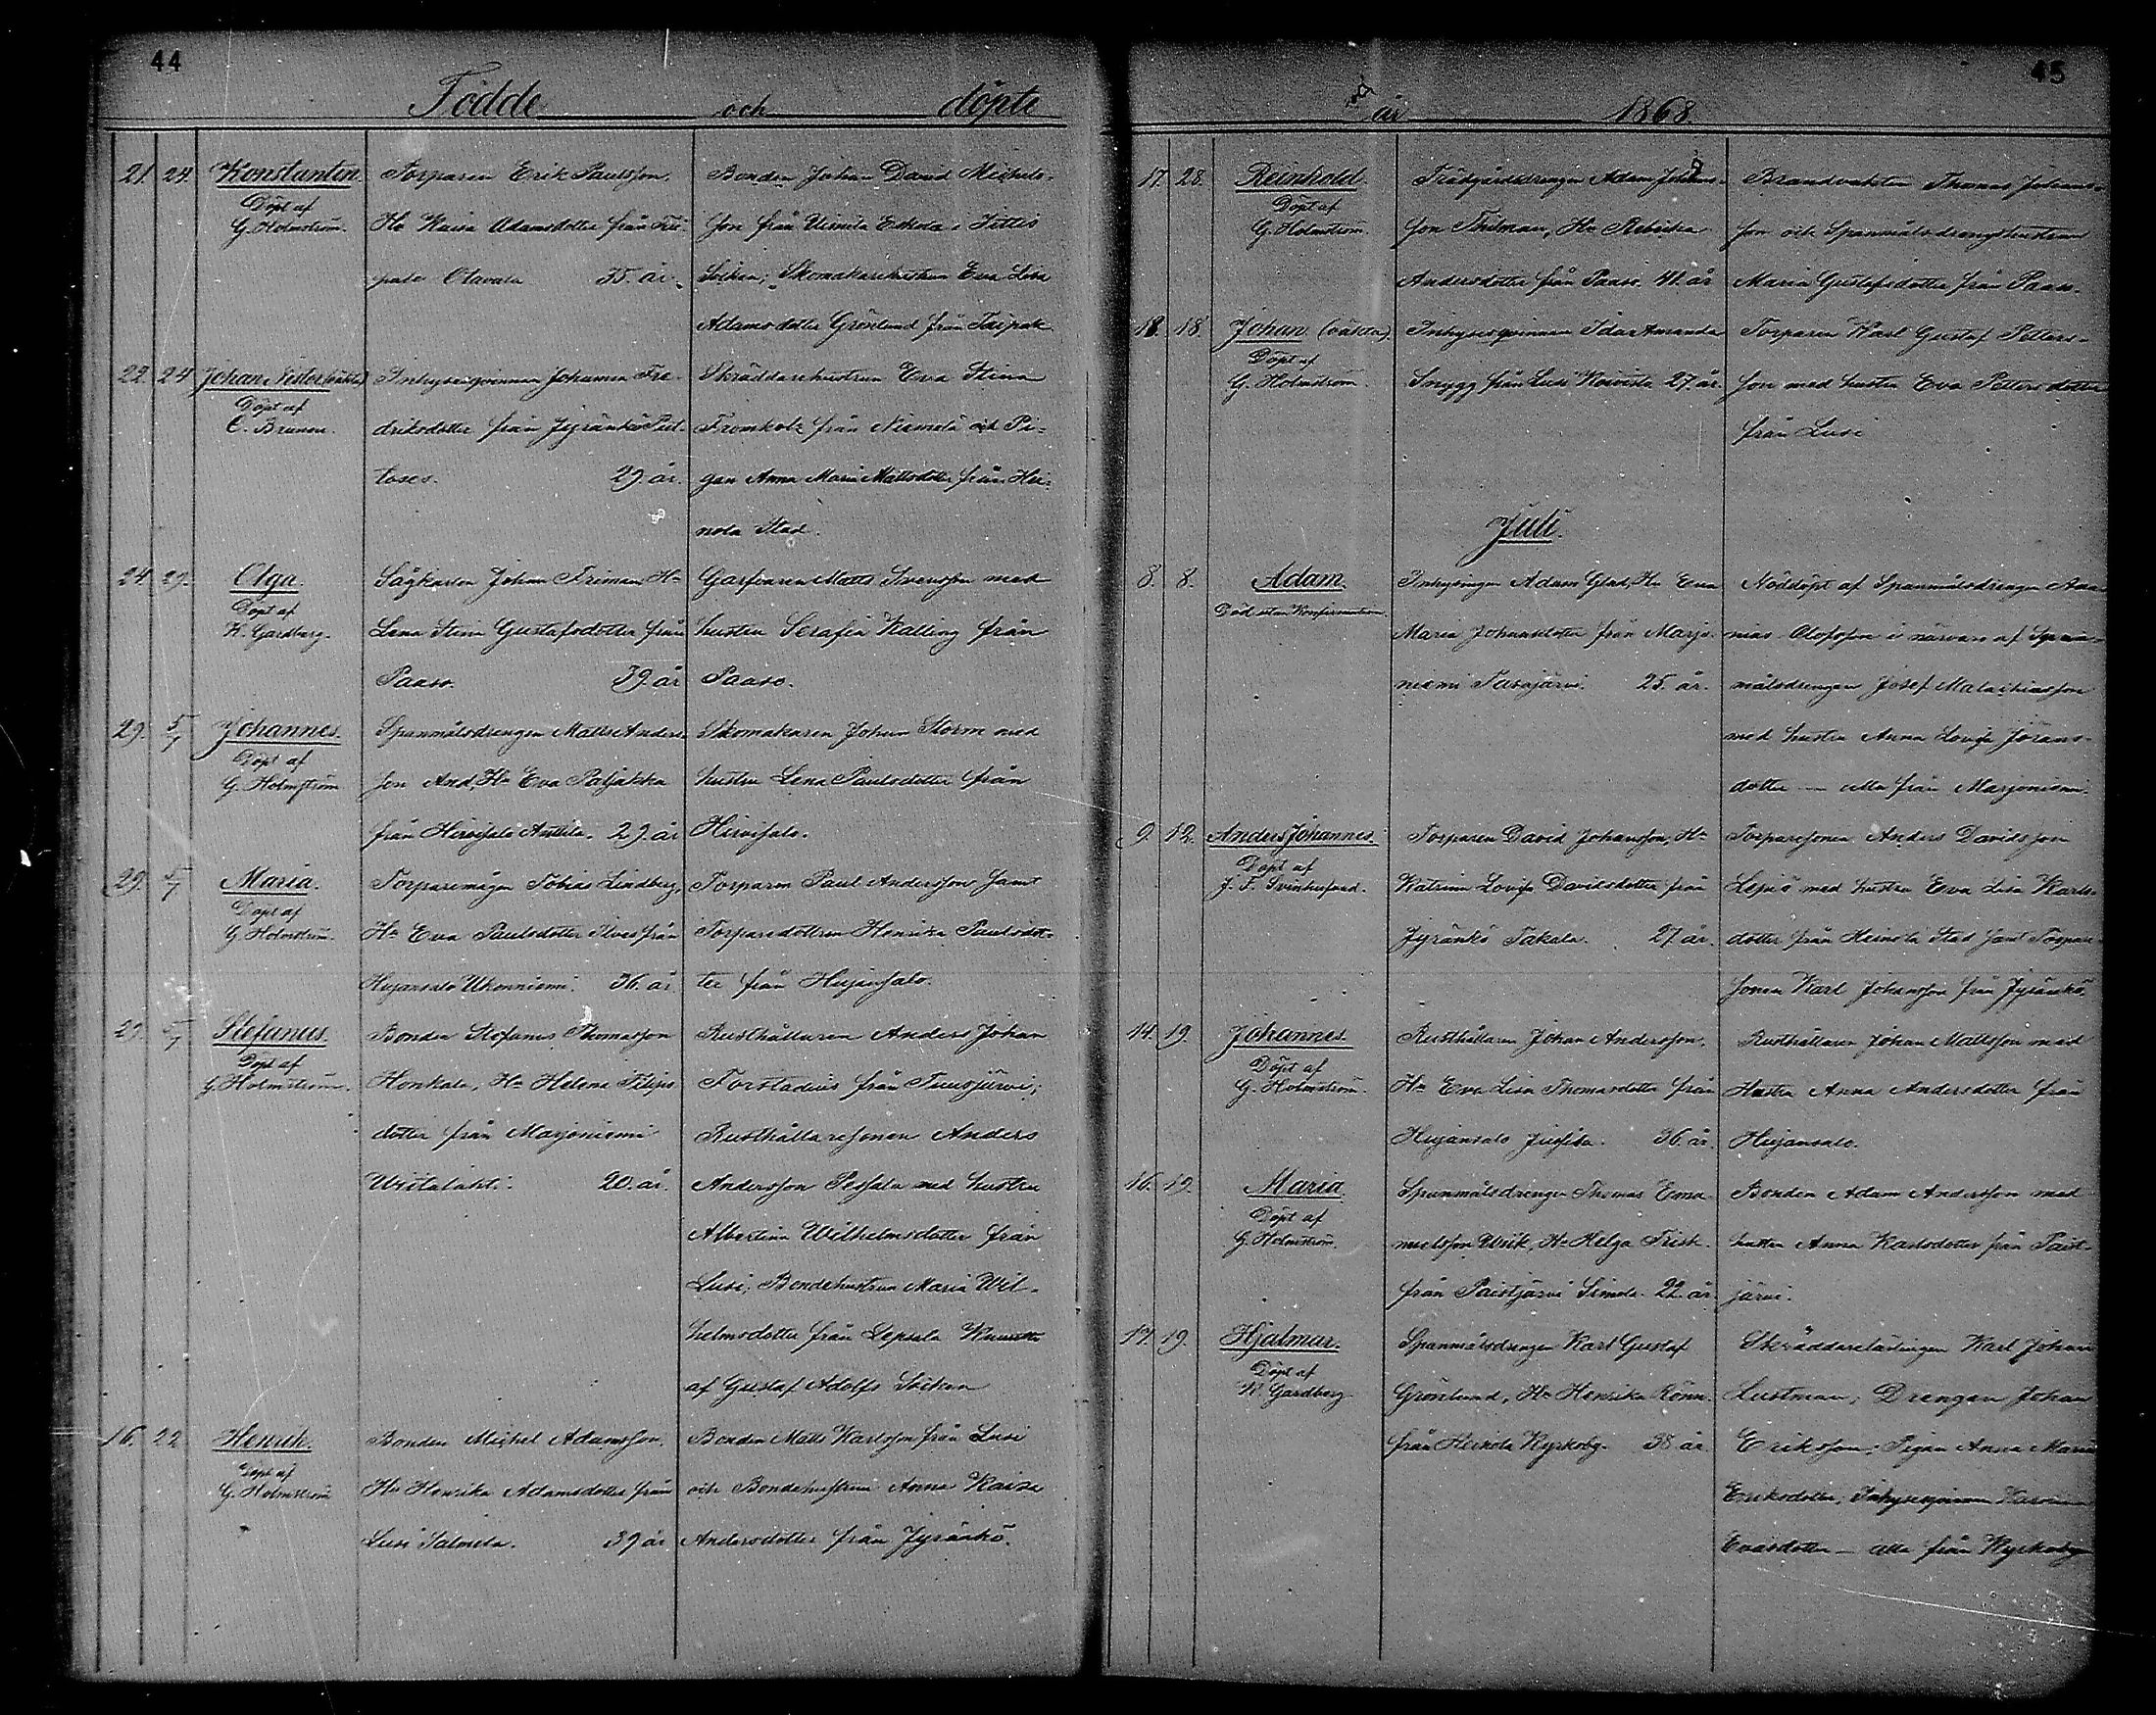 44
Födde och döpte
21. 24. Konstantin. Torparen Erik Paulsson. Bonden Johan David Michels-
Döpt af
G. Holmström. Hu Kaisa Adamsdotter från Tai- son från Uimila Eskola i Jittis
pale Olavala 35. år. Socken; Skomakarehustrun Eva Lisa
Adamsdotter Grönlund från Taipale
22. 24 Johan Nestor (oäkta) Inhysesqvinnan Johanna Fre- Skräddarehustrun Eva Stina
Döpt af
C. Brunou. driksdotter från Jyränkö från Niemelä och Pi-
29. år. gan Anna Maria Mattsdotter från Hei-
nola Stad.
24 29. Olga. Sågkarlen Johan Friman Hu Matts Svensson med
Döpt af
K. Gardberg. Lena Stina Gustafsdotter från hustru Serafia Kalling från
Paaso. 39. år Paaso.
29. 5/7 Johannes. Spanmålsdrengen Matts Anders- Skomakaren Johan Storm med
Döpt af
G. Holmström son And, Hu Eva hustru Lena Paulsdotter från
från Hirvisalo Anttila. 29. år Hirvisalo.
29. 5/7 Maria. Torparemågen Tobias Lindberg, Torparen Paul Andersson samt
Döpt af
G. Holmström. Hu Eva Paulsdotter Ilves från Torparedottren Henrika Paulsdot-
Hujansalo Ukonniemi. 36. år. ter från Hujansalo.
29. 5/7 Stefanus. Bonden Stefanus Thomasson Rusthållaren Anders Johan
Döpt af
G. Holmström. Honkala, Hu Helena Filips Forstadius från Tuusjärvi;
dotter från Marjoniemi Rusthållaresonen Anders
20. år. Andersson Pessala med hustru
Albertina Wilhelmsdotter från
Lusi; Bondehustrun Maria Wil-
helmsdotter från Lepsala
af Gustaf Adolfs Socken
16. 22 Henrik. Bonden Michel Adamsson, Bonden Matts Karlsson från Lusi
Döpt af
G. Holmström Hu Henrika Adamsdotter från och Bondehustrun Anna Kaisa
Lusi Salmela. 39 år Andersdotter från Jyränkö.
45
år 1868
17. 28. Reinhold. Trädgårdsdrengen Adam Johans- Brandvakten Thomas Johans-
Döpt af
G. Holmström. son Thilman, Hu Rebecka son och Spanmålsdrengshustrun
Andersdotter från Paaso. 41. år Maria Gustafsdotter från Paaso.
18. 18. Johan (oäkta). Inhysesqvinnan Ida Amanda Torparen Karl Gustaf Petters-
Döpt af
G. Holmström. Snygg från Lusi Koivisto 27. år. son med hustru Eva Pettersdotter
från Lusi
Juli.
8. 8. Adam. Inhysingen Adam Glad, Hu Eva Nöddöpt af Spanmålsdrengen Ana-
Död utan Konfirmation.
Maria Johansdotter från Marjo- nias Olofsson i närvaro af Span-
niemi Tasajärvi. 25. år. målsdrengen Josef Malachiasson
med hustru Anna Lovisa Jörans-
dotter — alla från Marjoniemi.
9. 12. Anders Johannes. Torparen David Johansson, Hu Torparesonen Anders Davidsson
Döpt af
J. F. Svinhufvud. Katrina Lovisa Davidsdotter från Lepiö med hustru Eva Lisa Karls-
Jyränkö Takala. 27. år. dotter från Heinola Stad samt Torpare-
sonen Karl Johansson från Jyränkö.
14. 19. Johannes. Rusthållaren Johan Andersson, Rusthållaren Johan Mattsson med
Döpt af
G. Holmström. Hu Eva Lisa Thomasdotter från Hustru Anna Andersdotter från
Hujansalo Jussila. 36. år. Hujansalo.
16. 19. Maria Spanmålsdrengen Thomas Ema- Bonden Adam Andersson med
Döpt af
G. Holmström. nuelsson Ulrik, Hu Helga Frisk hustru Anna Karlsdotter från Paist-
från Paistjärvi Simola. 22. år. järvi.
17. 19. Hjalmar. Spanmålsdrengen Karl Gustaf Skräddarelärlingen Karl Johan
Döpt af
K. Gardberg Grönlund, Hu Henrika Rönn. Lustman; Drengen Johan
från Heinola Kyrkoby. 38 år. Eriksson; Pigan Anna Maria
Eriksdotter; Inhysesqvinnan Karolina
Evasdotter — alla från Kyrkoby